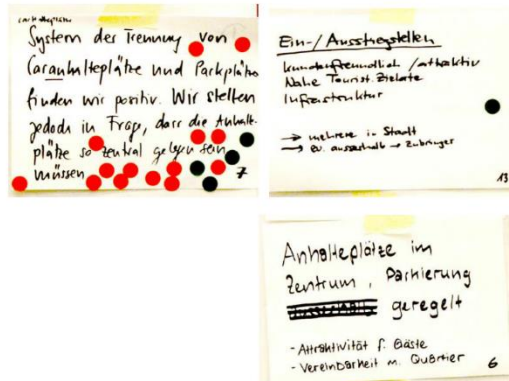 System der Trennung von
Caranhalteplätze und Parkplätze
finden wir positiv. Wir stellen
jedoch in Frage, dass die Anhalt-
plätze so zentral gelegen sein
müssen
7
Ein-/Ausstiegstellen
kundenfreundlich/attraktiv
Nähe Tourist. Zielorte
Infrastruktur
→ mehrere in Stadt
→ ev. ausserhalb → Zubringer
13
Anhalteplätze im
Zentrum, Parkierung
geregelt
- Attraktivität f. Gäste
- Vereinbarkeit m. Quartier
6